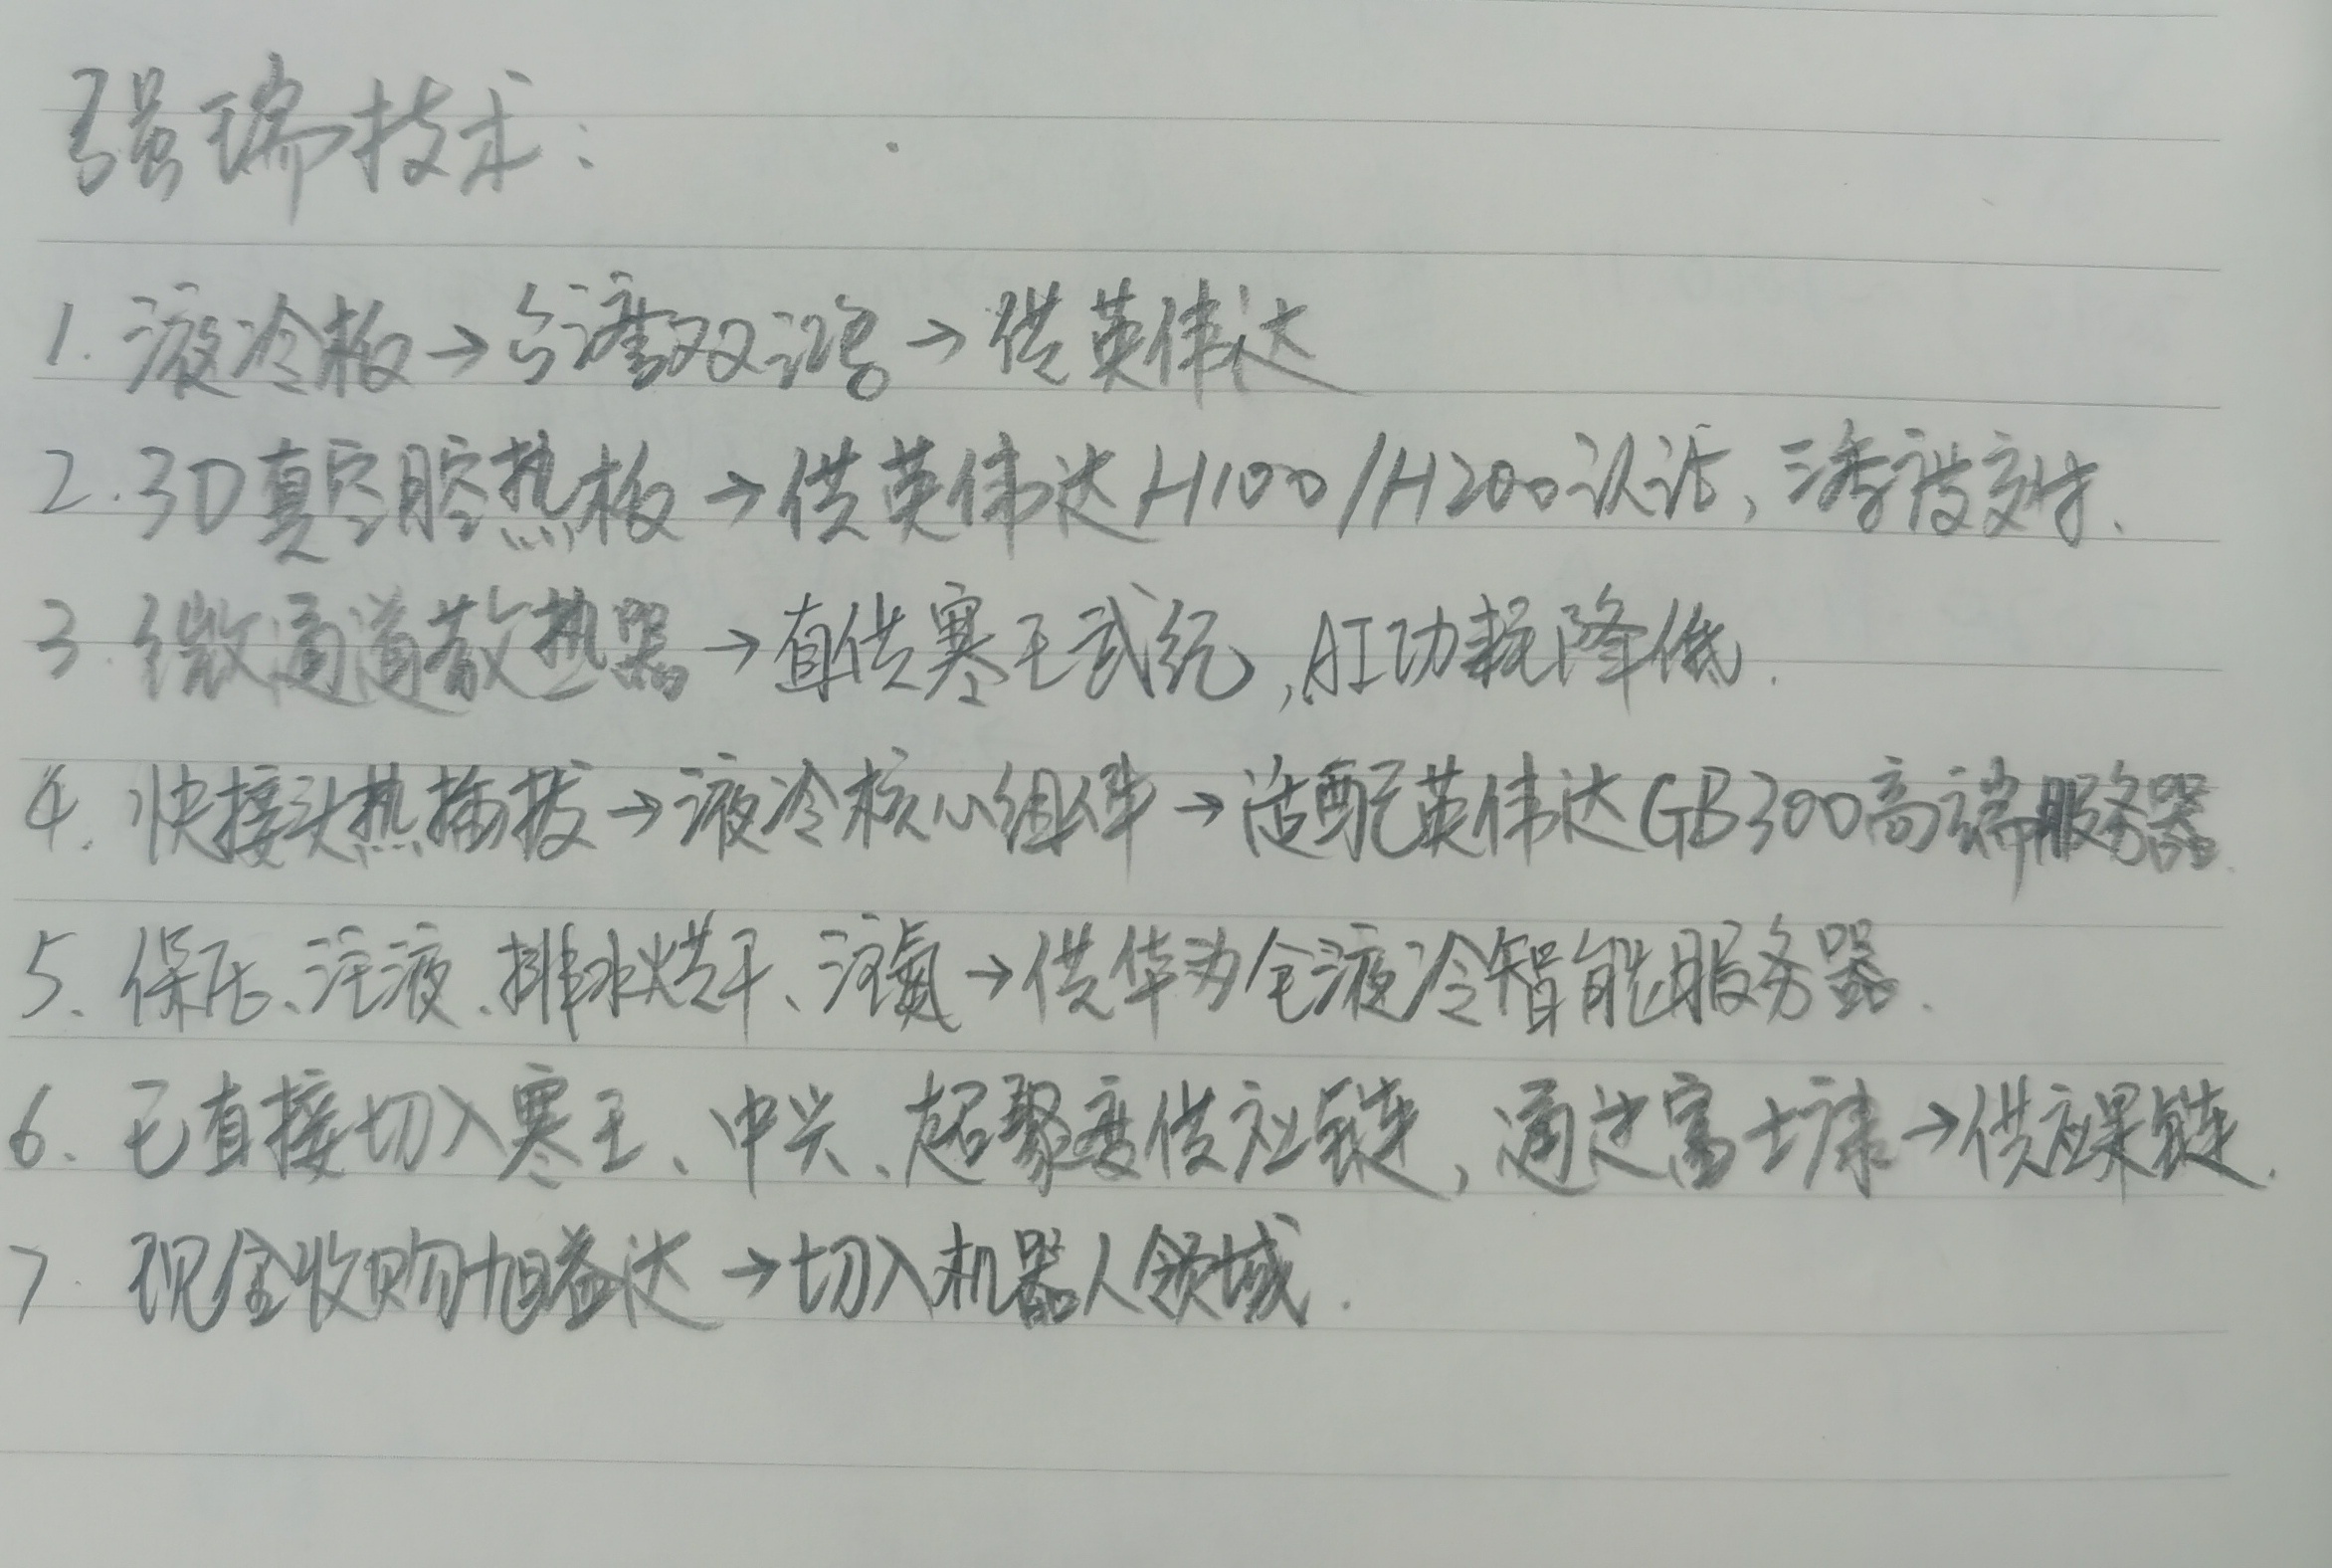 强瑞技术:
1. 液冷板→台湾双鸿→供英伟达
2. 3D真空腔热板→供英伟达H100/H200认证,
3. 微通道散热器→直供寒王武纪,AI功耗降低.
4. 快接头热插拔→液冷核心组件→适配英伟达GB300高端服务器.
5. 保压、注液、排水烘干、注氮→供华为全液冷智能服务器.
6. 已直接切入寒王、中兴、超聚变供应链, 通过富士康→供应果链.
7. 现金收购旭益达→切入机器人领域.